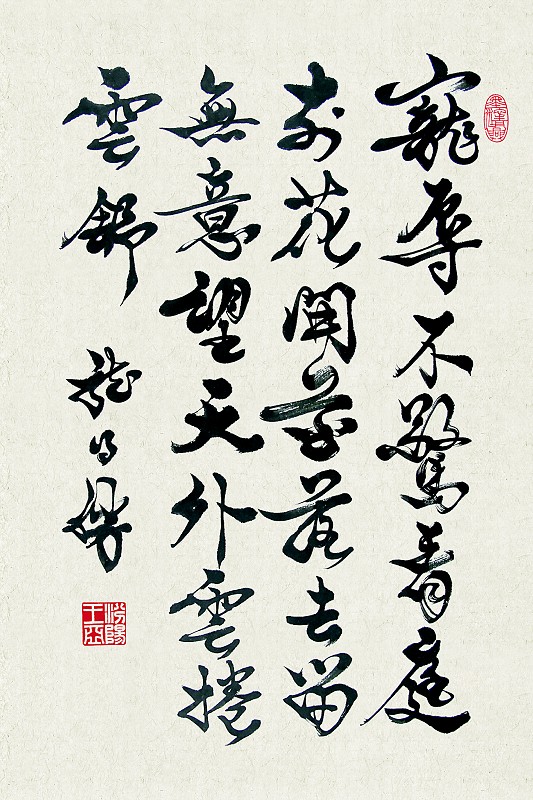 寵辱不驚看庭
前花開花落去留
無意望天外雲捲
雲舒